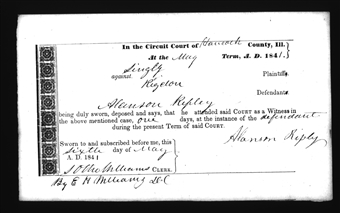 In the Circuit Court of Hancock County, Ill.
At the May Term, A. D. 1841.
Singly
against Plaintiff
Rigdon
Defendant
Alanson Ripley
being duly sworn, deposed and says, that he attended said COURT as a Witness in
the above mentioned case, one days, at the instance of the defendant
during the present Term of said COURT.
Alanson Ripley
Sworn to and subscribed before me, this
sixth day of May
A. D. 1841
Williams CLERK.
By E H Williams